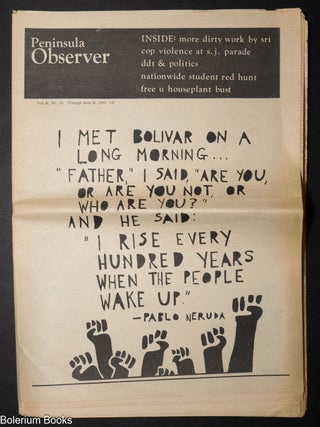 Peninsula
Observer
INSIDE: more dirty work by sri
cop violence at s. j. parade
ddt & politics
nationwide student red hunt
free u houseplant bust
I MET BOLIVAR ON A
LONG MORNING...
"FATHER," I SAID, "ARE YOU,
OR ARE YOU NOT, OR
WHO ARE YOU?"
AND HE SAID:
"I RISE EVERY
HUNDRED YEARS
WHEN THE PEOPLE
WAKE UP."
—PABLO NERUDA
Bolerium Books